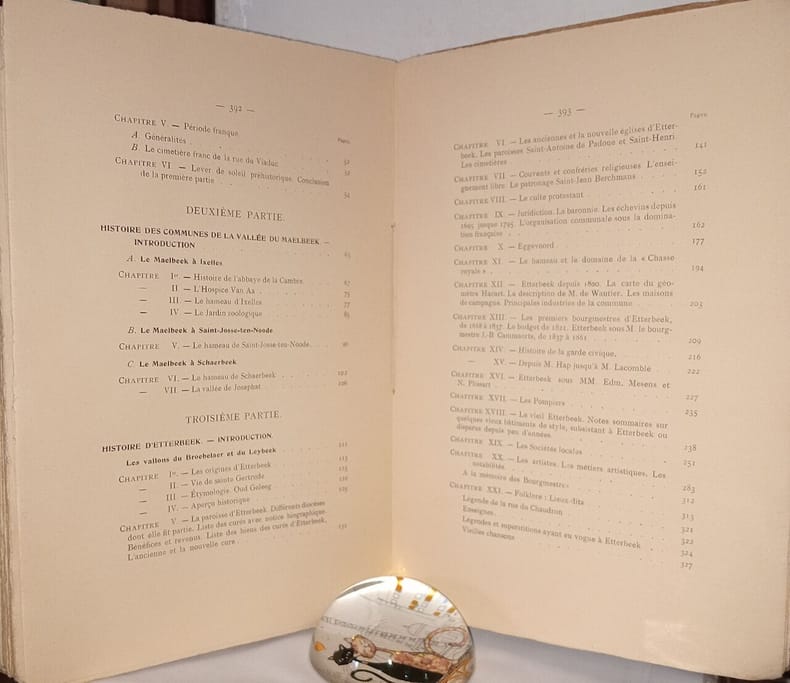 — 392 —
Pages
CHAPITRE V. — Période franque
A. Généralités . 52
B. Le cimetière franc de la rue du Viaduc 52
CHAPITRE VI — Lever de soleil préhistorique. Conclusion
de la première partie 54
DEUXIÈME PARTIE.
HISTOIRE DES COMMUNES DE LA VALLÉE DU MAELBEEK —
INTRODUCTION
A. Le Maelbeek à Ixelles
CHAPITRE Ier. — Histoire de l'abbaye de la Cambre. 67
— II. — L'Hospice Van Aa 75
— III. — Le hameau d'Ixelles 77
— IV. — Le Jardin zoologique
B. Le Maelbeek à Saint-Josse-ten-Noode
CHAPITRE V. — Le hameau de Saint-Josse-ten-Noode.
C. Le Maelbeek à Schaerbeek
CHAPITRE VI. — Le hameau de Schaerbeek
— VII. — La vallée de Josaphat
TROISIÈME PARTIE.
HISTOIRE D'ETTERBEEK. — INTRODUCTION.
Les vallons du Broebelaer et du Leybeek
CHAPITRE Ier. — Les origines d'Etterbeek
— II. — Vie de sainte Gertrude
— III — Étymologie. Oud Geleeg
— IV. — Aperçu historique
CHAPITRE V. — La paroisse d'Etterbeek. Différents diocèses
dont elle fit partie. Liste des curés avec notice biographique.
Bénéfices et revenus. Liste des biens des curés d'Etterbeek.
L'ancienne et la nouvelle cure .
— 393 —
Pages
CHAPITRE VI. — Les anciennes et la nouvelle églises d'Etter-
beek. Les paroisses Saint-Antoine de Padoue et Saint-Henri
Les cimetières . 141
CHAPITRE VII. — Couvents et confréries religieuses L'ensei-
gnement libre. Le patronage Saint-Jean Berchmans 152
CHAPITRE VIII. — Le culte protestant 161
CHAPITRE IX. — Juridiction. La baronnie. Les échevins depuis
1695 jusque 1795. L'organisation communale sous la domina-
tion française 162
CHAPITRE X — Eggevoord 177
CHAPITRE XI. — Le hameau et le domaine de la « Chasse
royale » . 194
CHAPITRE XII. — Etterbeek depuis 1800. La carte du géo-
mètre Hacart. La description de M. de Wautier. Les maisons
de campagne. Principales industries de la commune 203
CHAPITRE XIII. — Les premiers bourgmestres d'Etterbeek,
de 1818 à 1837. Le budget de 1821. Etterbeek sous M. le bourg-
mestre J.-B Cammaerts, de 1837 à 1861 209
CHAPITRE XIV. — Histoire de la garde civique. 216
— XV. — Depuis M. Hap jusqu'à M. Lacomblé 222
CHAPITRE XVI. — Etterbeek sous MM. Edm. Mesens et
N. Plissart 227
CHAPITRE XVII. — Les Pompiers 235
CHAPITRE XVIII. — Le vieil Etterbeek. Notes sommaires sur
quelques vieux bâtiments de style, subsistant à Etterbeek ou
disparus depuis peu d'années 238
CHAPITRE XIX. — Les Sociétés locales 251
CHAPITRE XX. — Les artistes. Les métiers artistiques. Les
notabilités 283
A la mémoire des Bourgmestres 312
CHAPITRE XXI. — Folklore : Lieux-dits 313
Légende de la rue du Chaudron 321
Enseignes 322
Légendes et superstitions ayant eu vogue à Etterbeek 324
Vieilles chansons 327